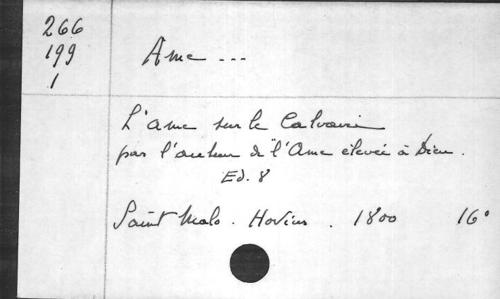 266
199
1
Ame ...
L'ame sur le Calvaire
par l'auteur de "l'Ame élevée à Dieu.
Ed. 8
Saint Malo. Hovius. 1800 16°